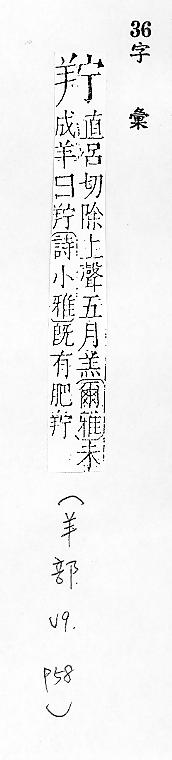 36字彙
羜直呂切除上聲五月羔爾雅未
成羊曰羜詩小雅旣有肥羜
(羊部 V9. P58)